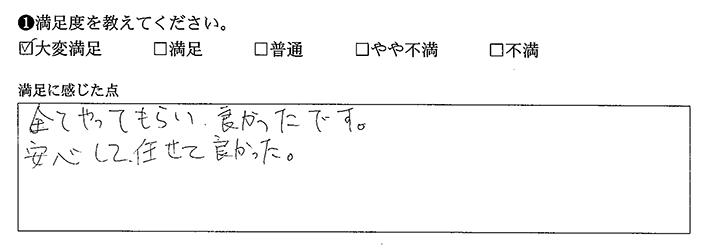 ❶満足度を教えてください。
☑大変満足 □満足 □普通 □やや不満 □不満
満足に感じた点
全てやってもらい、良かったです。
安心して、任せて良かった。